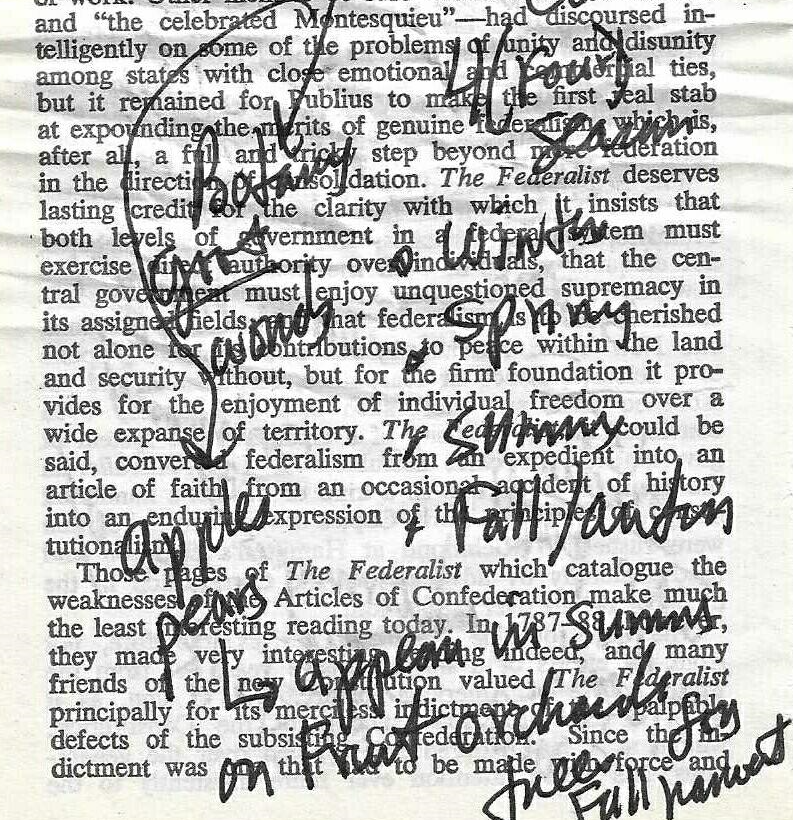 and "the celebrated Montesquieu"—had discoursed in-
telligently on some of the problems of unity and disunity
among states with close emotional and commercial ties,
but it remained for Publius to make the first real stab
at expounding the merits of genuine federalism, which is,
after all, a full and tricky step beyond mere federation
in the direction of consolidation. The Federalist deserves
lasting credit for the clarity with which it insists that
both levels of government in a federal system must
exercise direct authority over individuals, that the cen-
tral government must enjoy unquestioned supremacy in
its assigned fields, and that federalism is to be cherished
not alone for its contributions to peace within the land
and security without, but for the firm foundation it pro-
vides for the enjoyment of individual freedom over a
wide expanse of territory. The Federalist could be
said, converted federalism from an expedient into an
article of faith, from an occasional accident of history
into an enduring expression of the principles of consti-
tutionalism.
Those pages of The Federalist which catalogue the
weaknesses of the Articles of Confederation make much
the least interesting reading today. In 1787-88, however,
they made very interesting reading indeed, and many
friends of the new Constitution valued The Federalist
principally for its merciless indictment of the palpable
defects of the subsisting Confederation. Since the in-
dictment was one that had to be made with force and
4/Four
Season
Both
Botany
Great
words
Winter
Spring
Summ
Fall/autum
apples
pears
appear in Summ
on Fruit orchard
trees
Fall harvest